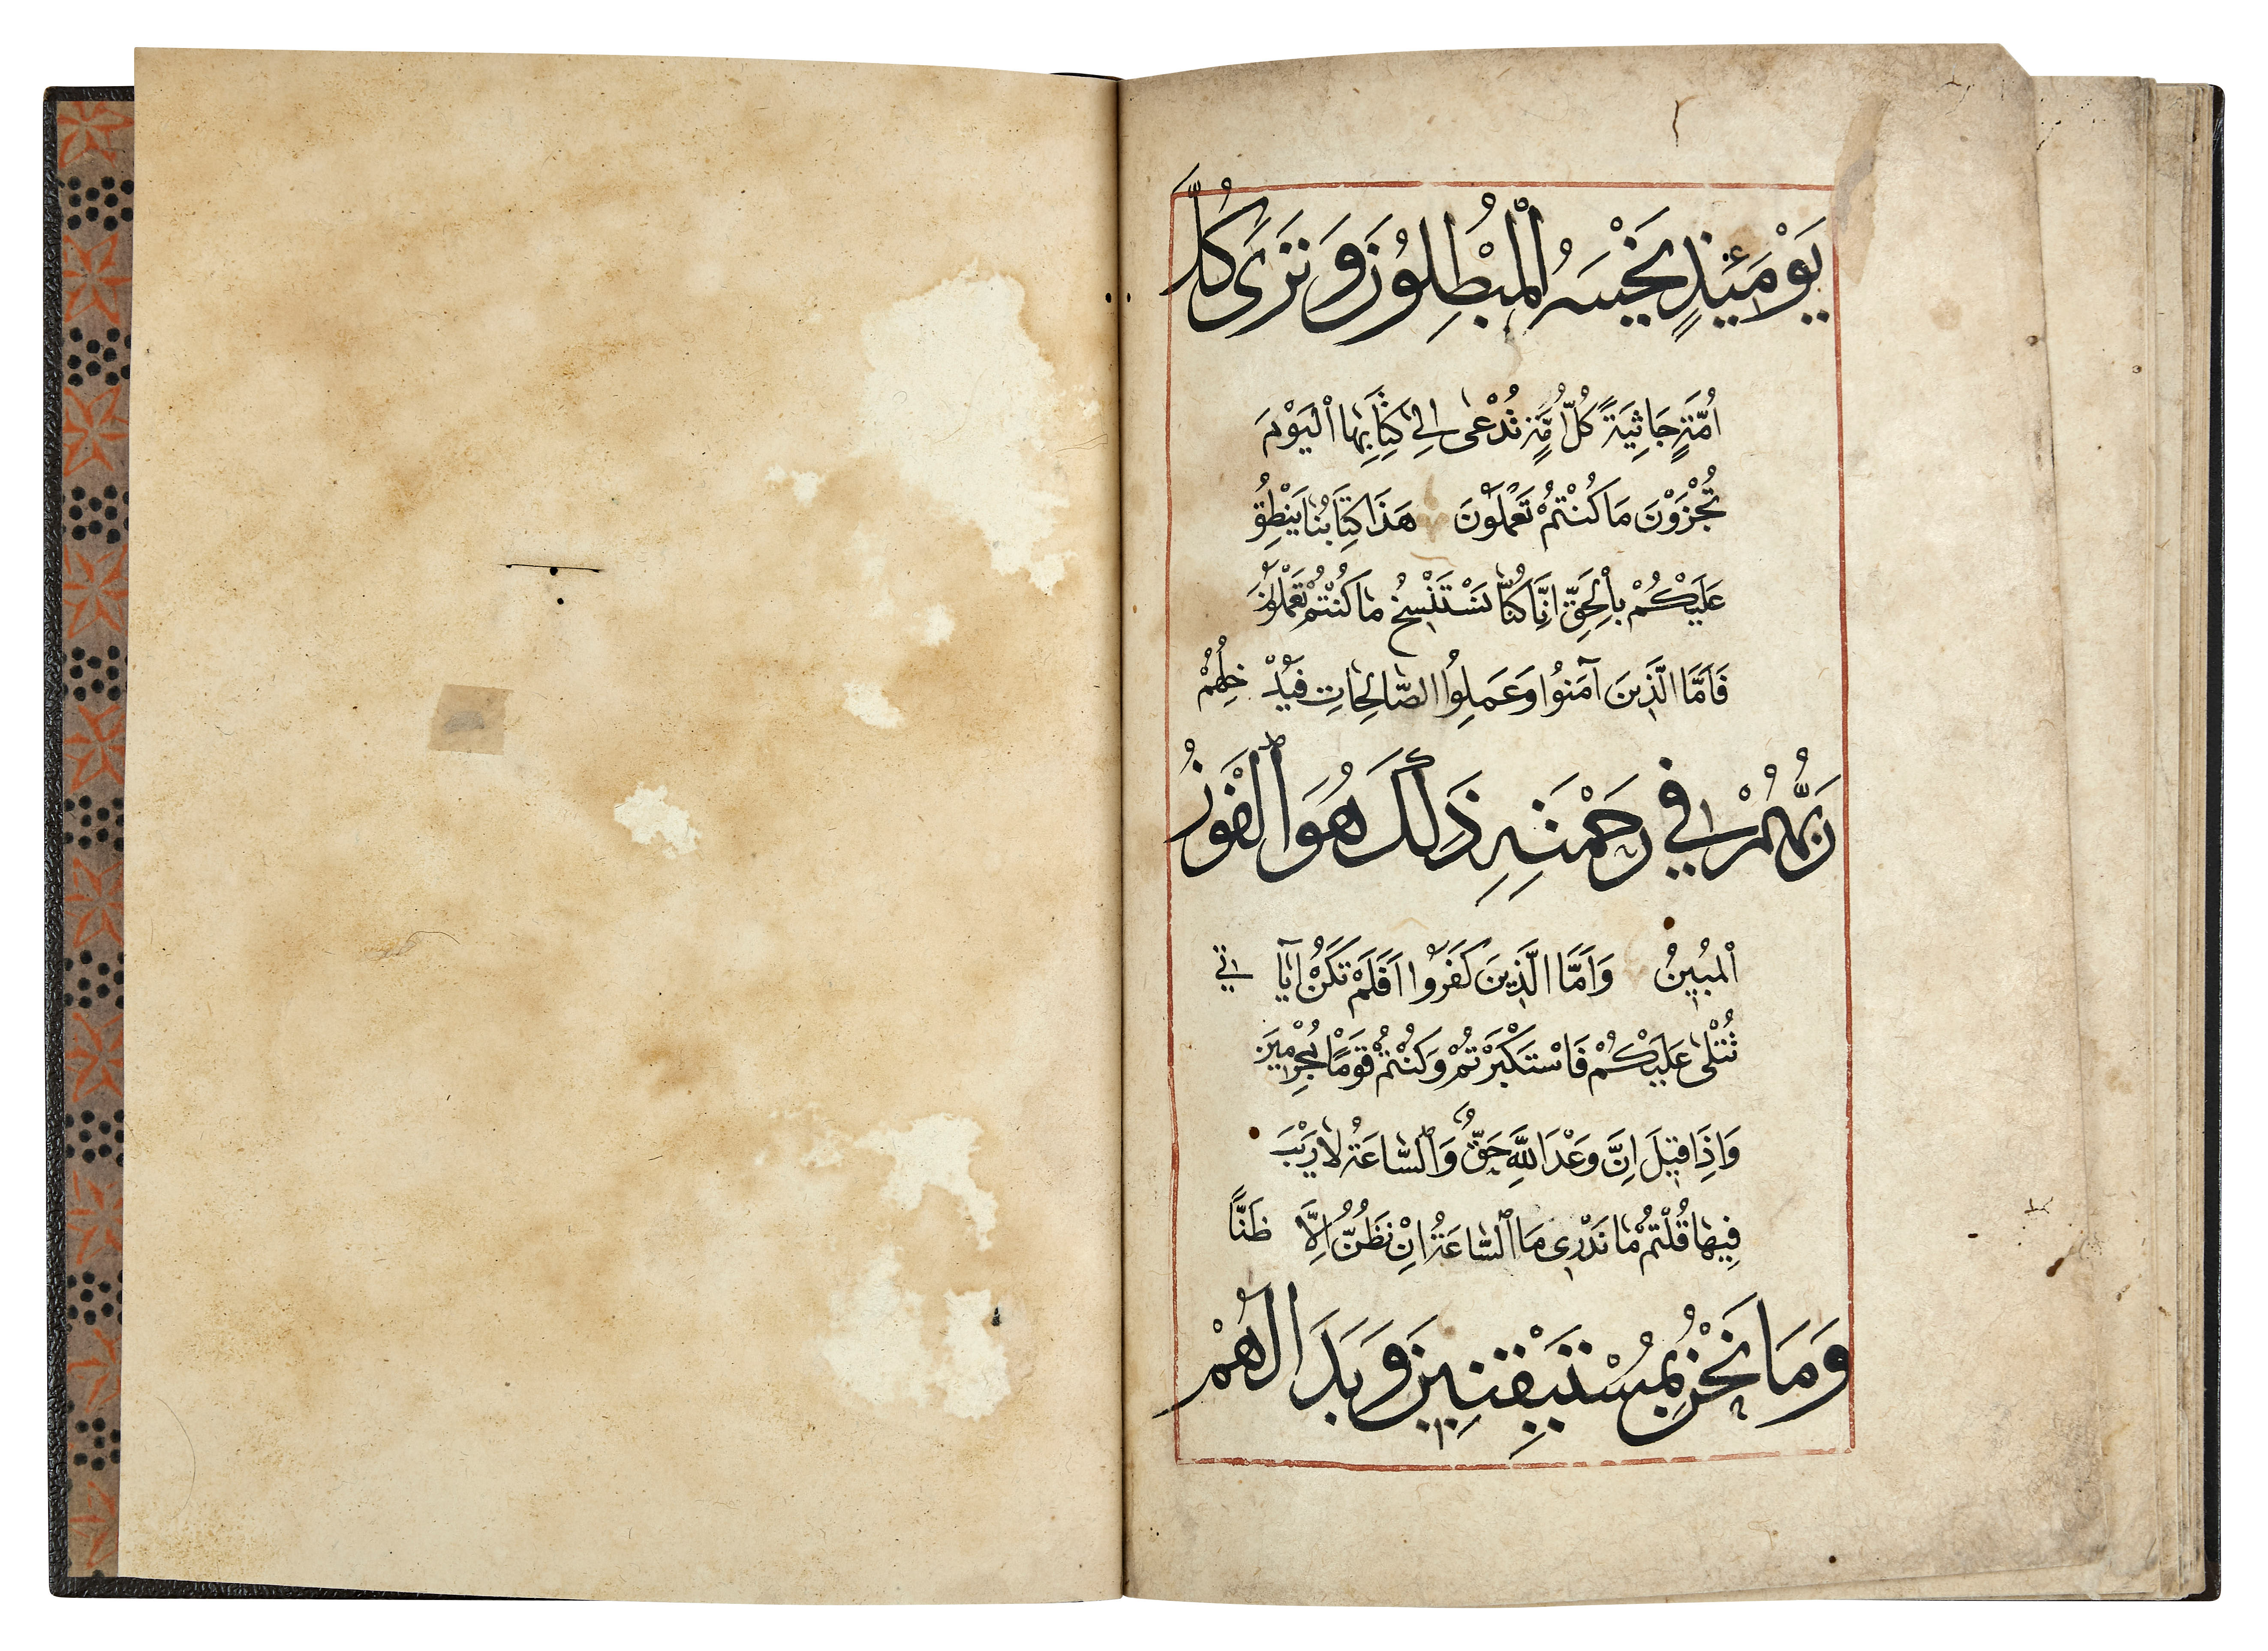 يَوْمَئِذٍ يَخْسَرُ الْمُبْطِلُونَ وَتَرَى كُلَّ
اُمَّةٍ جَاثِيَةً كُلُّ اُمَّةٍ تُدْعٰى اِلٰى كِتَابِهَا الْيَوْمَ
تُجْزَوْنَ مَا كُنْتُمْ تَعْمَلُوْنَ هَذَا كِتَابُنَا يَنْطِقُ
عَلَيْكُمْ بِالْحَقِّ اِنَّا كُنَّا نَسْتَنْسِخُ مَا كُنْتُمْ تَعْمَلُوْنَ
فَاَمَّا الَّذِينَ آمَنُوا وَعَمِلُوا الصَّالِحَاتِ فَيُدْ خِلُهُمْ
رَبُّهُمْ فِي رَحْمَتِهِ ذَلِكَ هُوَ الْفَوْزُ
الْمُبِينُ وَاَمَّا الَّذِينَ كَفَرُوا اَفَلَمْ تَكُنْ اٰيَا تِي
تُتْلٰى عَلَيْكُمْ فَاسْتَكْبَرْتُمْ وَكُنْتُمْ قَوْمًا مُجْرِمِيْنَ
وَاِذَا قِيلَ اِنَّ وَعْدَ اللَّهِ حَقٌّ وَالسَّاعَةُ لَا رَيْبَ
فِيهَا قُلْتُمْ مَا نَدْرِي مَا السَّاعَةُ اِنْ نَظُنُّ اِلَّا ظَنًّا
وَمَا نَحْنُ بِمُسْتَيْقِنِينَ وَبَدَا لَهُمْ